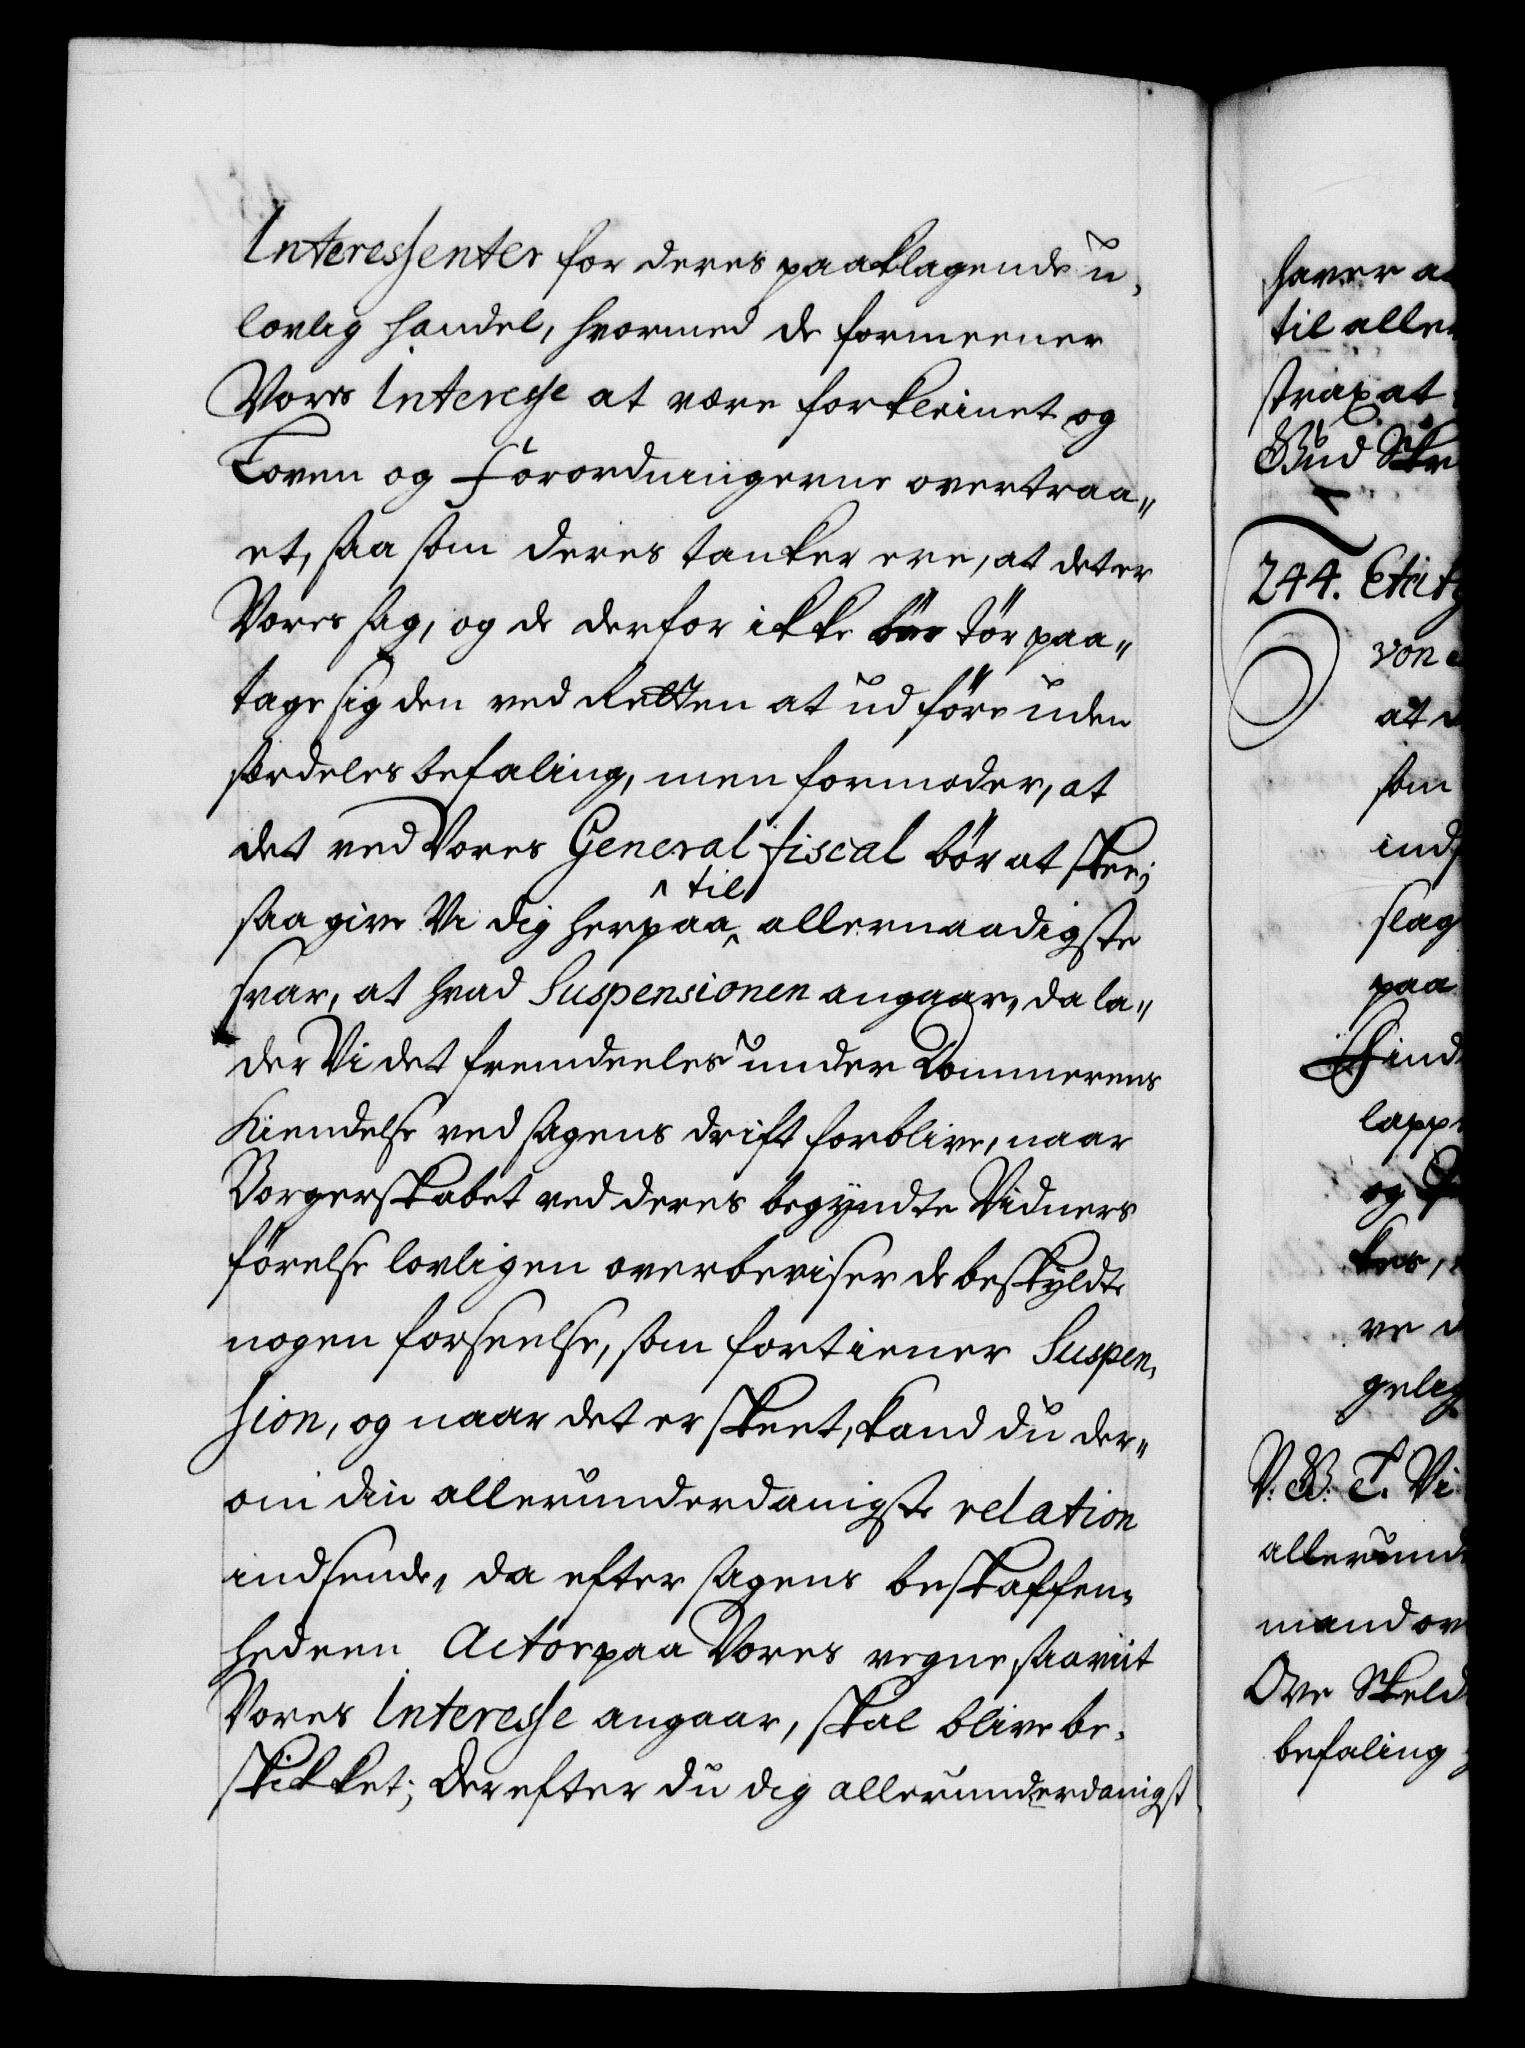 Interessenter for deres paaklagende u-
lovlig handel, hvormed de formeener
Vores Interesse at være forkleinet og
Loven og Forordningerne overtraa-
et, saa som deres tanker ere, at det er
Vores sag, og de derfor ikke tør paa-
tage sig den ved Retten at udføre uden
særdeles befaling, men formoder, at
det ved Vores General fiscal bør at skee;
saa give Vi dig herpaa til allernaadigste
svar, at hvad Suspensionen angaar, da la-
der Vi det fremdeeles under Dommerens
Kiendelse ved sagens drift forblive, naar
Borgerskabet ved deres begyndte Vidners
førelse lovligen overbeviser de beskyldte
nogen forseelse, som fortiener Suspen-
sion, og naar det er skeet, kand du der-
om din allerunderdanigste relation
indsende, da efter sagens beskaffen-
hed een Actor paa Vores vegne saavit
Vores Interesse angaar, skal blive be-
skikket; Derefter du dig allerunderdanigst
haver a
til aller
strax at
Bud Skr
244. Etr
von
at
som
ind
slag
paa
Find
lapp
og
kes,
ve
gelig
V. B. T. Vi
allerund
mand ov
Ove Skeld
befaling